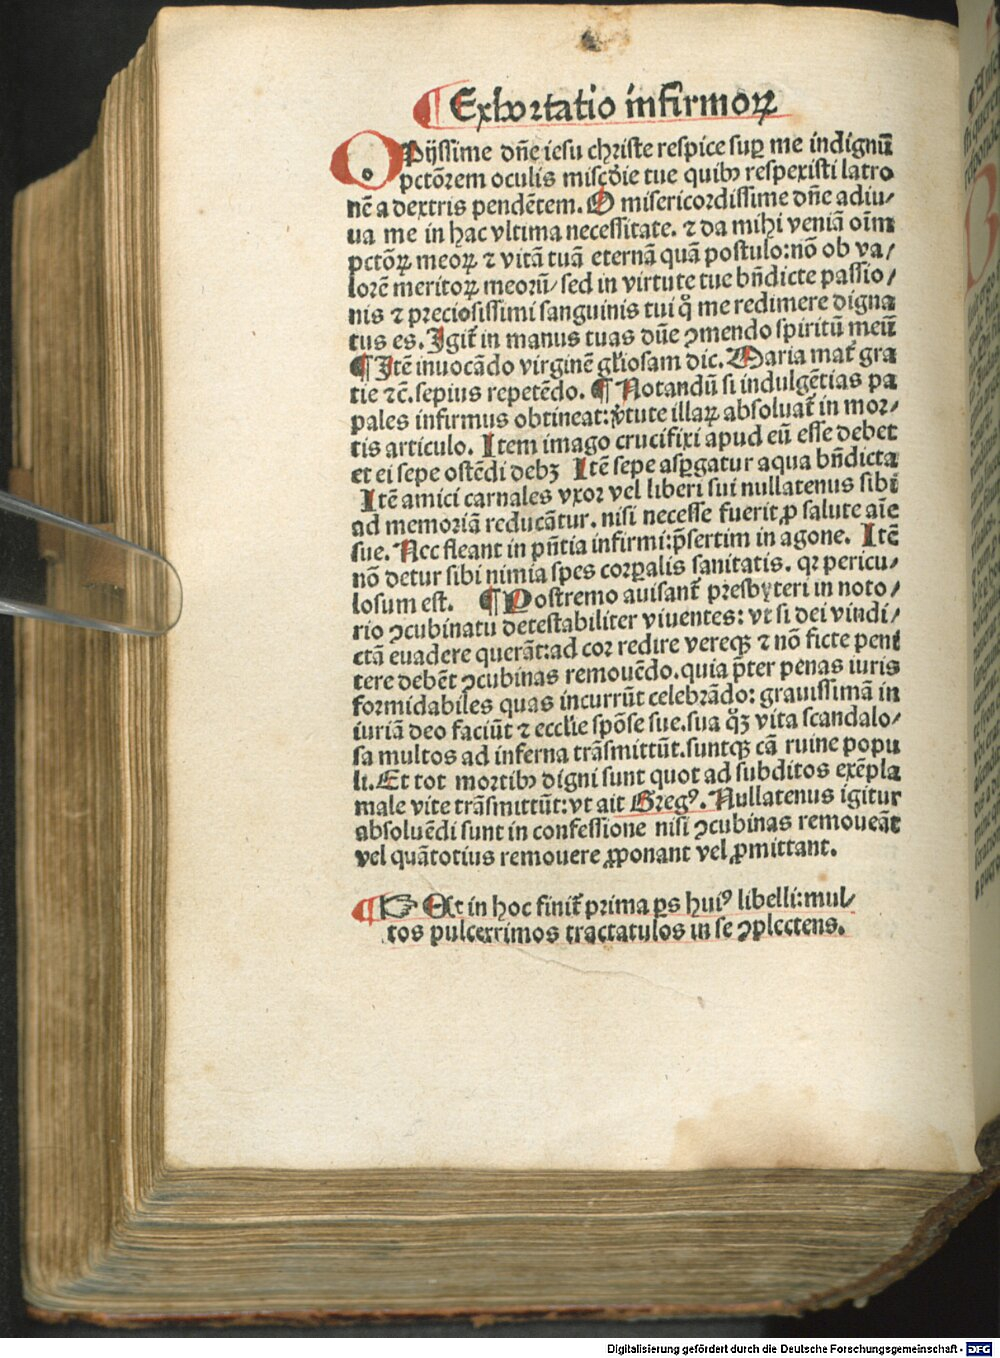 ¶ Exhortatio infirmoꝝ
O Pijssime dñe iesu christe respice suꝑ me indignū
pctōrem oculis miscd̄ie tue quibꝰ respexisti latro
nē a dextris pendētem. O misericordissime dñe adiu/
ua me in hac vltima necessitate. ⁊ da mihi veniā oīm
pctōꝝ meoꝝ ⁊ vitā tuā eternā quā postulo: nō ob va/
lorē meritoꝝ meorū/ sed in virtute tue bñdicte passio/
nis ⁊ preciosissimi sanguinis tui q̊ me redimere digna
tus es. Igit̄ in manus tuas dñe ꝯmendo spiritū meū
¶ Itē inuocādo virginē gl̄iosam dic. Maria mat̄ gra
tie ⁊c̄. sepius repetēdo. ¶ Notandū si indulgētias pa
pales infirmus obtineat: v̄tute illaꝝ absoluat̄ in mor/
tis articulo. Item imago crucifixi apud eū esse debet
et ei sepe ostēdi debꝫ Itē sepe asꝑgatur aqua bñdicta
Itē amici carnales vxor vel liberi sui nullatenus sibi
ad memoriā reducātur. nisi necesse fuerit ꝓ salute aīe
sue. Nec fleant in pñtia infirmi: p̄sertim in agone. Itē
nō detur sibi nimia spes corꝑalis sanitatis. qꝛ pericu/
losum est. ¶ Postremo auisant̄ presbyteri in noto/
rio ꝯcubinatu detestabiliter viuentes: vt si dei vindi/
ctā euadere querāt: ad cor redire vereqꝫ ⁊ nō ficte peni
tere debēt ꝯcubinas remouēdo. quia p̄ter penas iuris
formidabiles quas incurrūt celebrādo: grauissimā in
iuriā deo faciūt ⁊ eccl̄ie spōse sue. sua q̊ꝫ vita scandalo/
sa multos ad inferna trāsmittūt. suntqꝫ cā ruine popu
li. Et tot mortibꝰ digni sunt quot ad subditos exēpla
male vite trāsmittūt: vt ait Gregꝰ. Nullatenus igitur
absoluēdi sunt in confessione nisi ꝯcubinas remoueāt
vel quātotius remouere ꝓponant vel ꝓmittant.
¶ ☞ Et in hoc finit̄ prima ꝑs huiꝰ libelli: mul/
tos pulcerrimos tractatulos in se ꝯplectens.
Digitalisierung gefördert durch die Deutsche Forschungsgemeinschaft - DFG